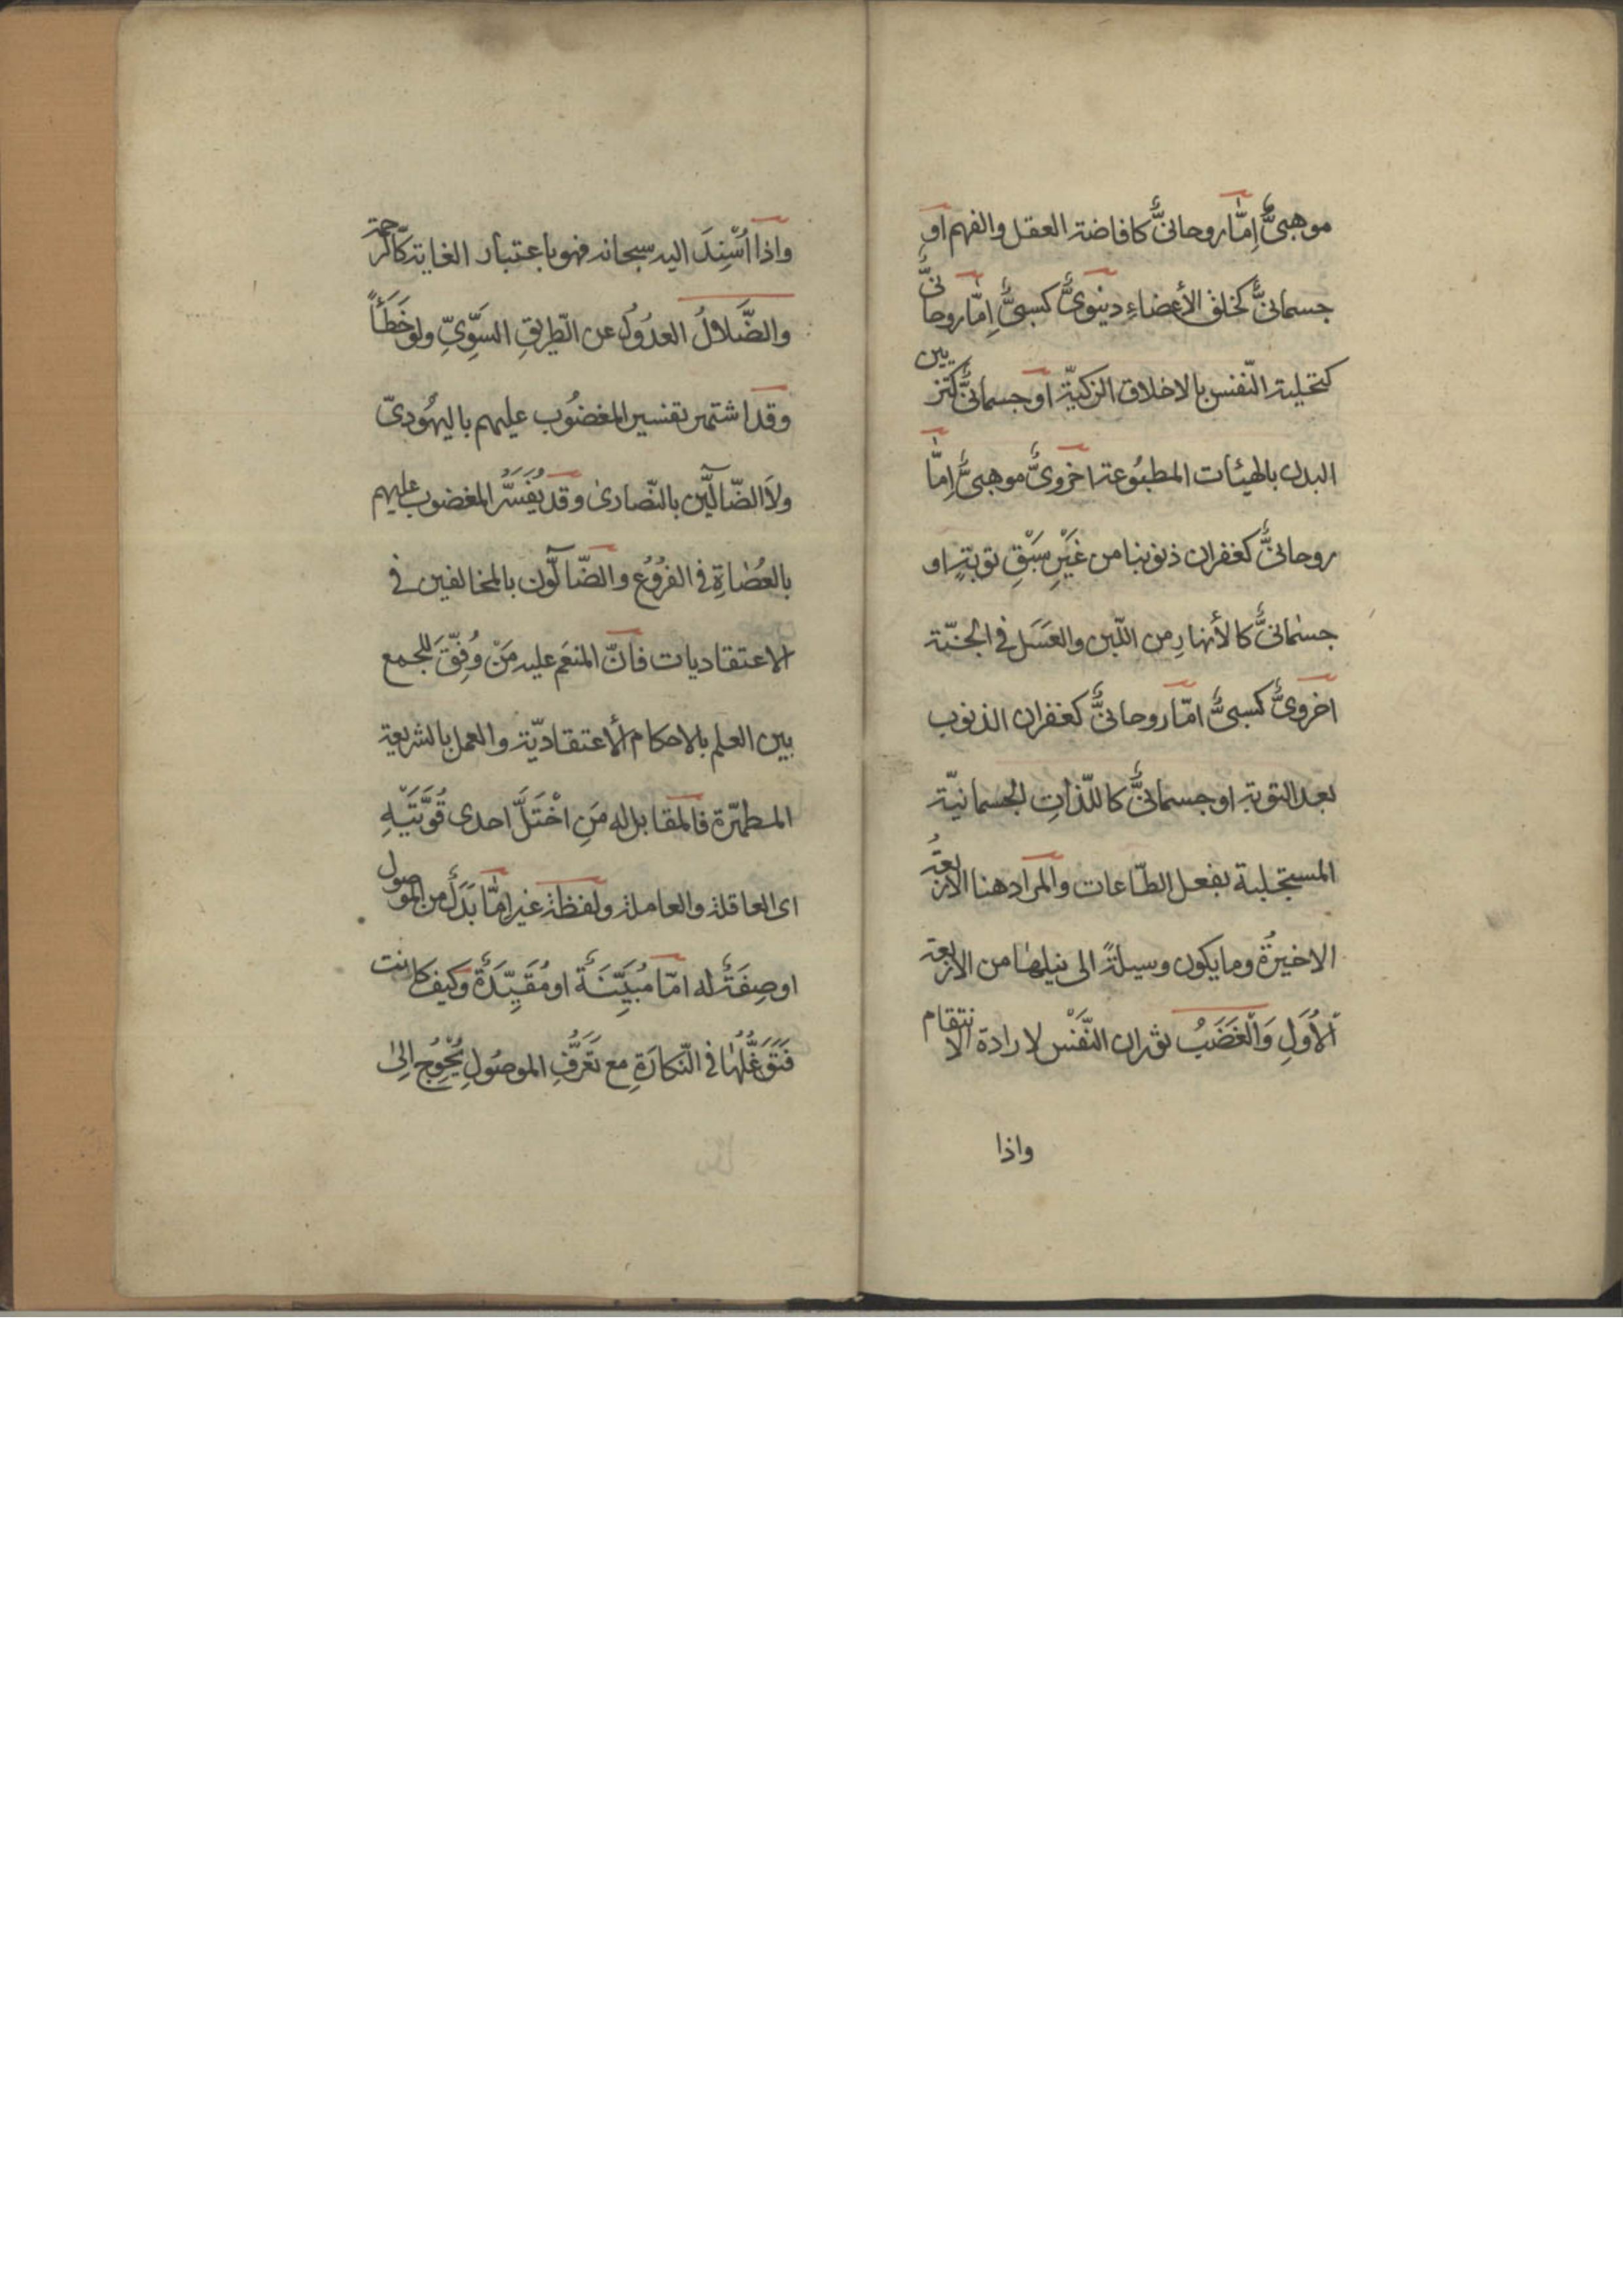 موهبىٌّ اِمّا روحانىٌّ كافاضة العقل والفهم او
جسمانىٌّ كخلق الأعضاءِ دنيوىٌّ كسبىٌّ اِمّا روحانىٌّ
كتحلية النّفس بالاخلاق الزكيّة او جسمانىٌّ كتزيين
البدن بالهيئات المطبُوعة اخروىٌّ موهبىٌّ اِمّا
روحانىٌّ كغفران ذنوبنا من غَيْرِ سَبْقِ توبةٍ او
جسمانىٌّ كالأنهارِ من اللّبن والعَسَل فى الجنّة
اخروىٌّ كسبىٌّ امّا روحانىٌّ كغفران الذنوب
بعد التوبة او جسمانىٌّ كاللّذاتِ الجسمانيّة
المستجلبة بفعل الطّاعات والمراد هنا الاربعَةُ
الاخيرَةُ وما يكون وسيلةً الى نيلها من الاربعة
الْأُوَلِ وَالْغَضَبُ ثوران النَّفْس لارادة الانتقام
واذا
واذا اُسْنِدَ اليه سبحانه فهو باعتبار الغاية كالرّحمة
والضَّلالُ العدُولُ عن الطّريقِ السَّوِىِّ ولو خَطَأً
وقد اشتهر تفسير المغضُوب عليهم باليهُودىّ
ولَا الضّآلّين بالنّصارىٰ وقد يُفَسَّرُ المغضوب عليهم
بالعُصَاةِ فى الفرُوُع والضّآلّون بالمخالفين فى
الاعتقاديات فانّ المنعَم عليه مَنْ وُفِّقَ للجمع
بين العلم بالاحكام الأعتقاديّة والعمل بالشريعة
المطهّرة فالمقابل له مَنِ اخْتَلَّ احدى قُوَّتَيْهِ
اى العاقلة والعاملة ولفظة غير اِمّا بَدَلٌ من الموصول
او صِفَةٌ له امّا مُبَيِّنَةٌ او مُقَيِّدَةٌ وكيف كانت
فَتَوَغُّلُهَا فى النّكارَةِ مع تَعَرُّفِ الموصُولِ يُحْوِجُ اِلىٰ